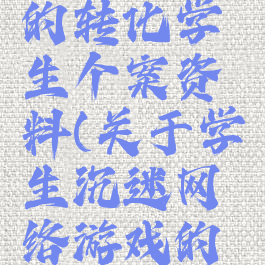 的转化学
生个案资
料(关于学
生沉迷网
络游戏的